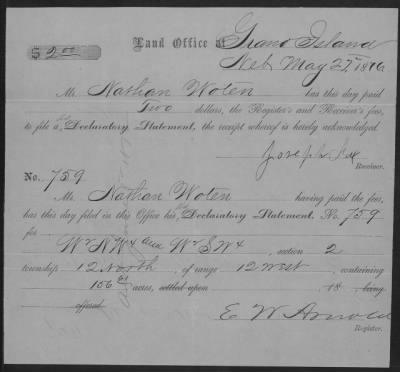 $ 2.00 Land Office at Grand Island
Neb May 27th 1876
Mr. Nathan Woten has this day paid
Two dollars, the Register's and Receiver's fees,
to file a Declaratory Statement, the receipt whereof is hereby acknowledged.
Joseph Fox
Receiver.
No. 759
Mr. Nathan Woten having paid the fees,
has this day filed in this Office his Declaratory Statement, No. 759
for
W½ NW¼ and W½ SW¼, section 2
township 12 North, of range 12 West, containing
156 acres, settled upon 18 , being
offered
E W Arnold
Register.